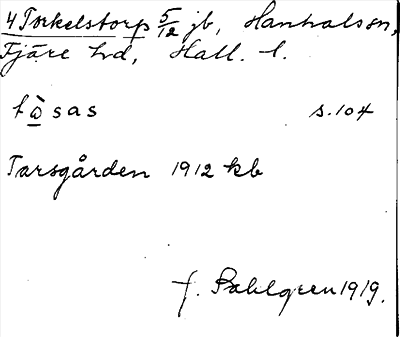 4 Torkelstorp 5/12 jb, Hanhals sn,
Fjäre hd, Hall. l.
tàsas s.104
Tarsgården 1912 kb
f. Sahlgren 1919.